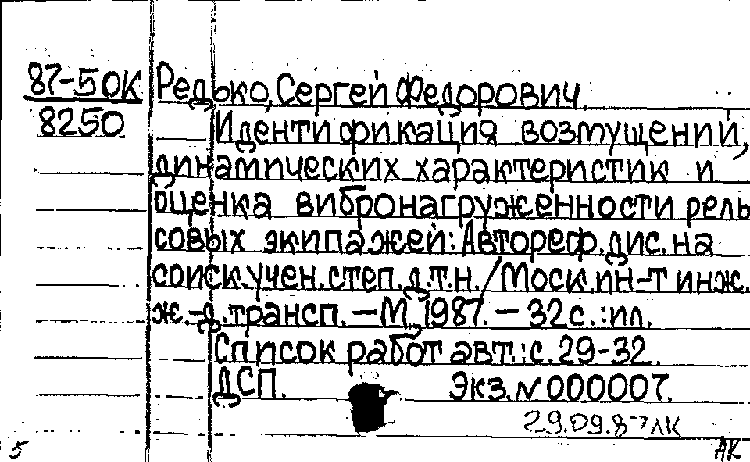 87-50К Редько, Сергей Федорович.
8250 Идентификация возмущений,
динамических характеристик и
оценка вибронагруженности рель
совых экипажей: Автореф. дис. на
соиск. учен. степ. д.т.н. / Моск. ин-т инж.
ж.-д. трансп. - М., 1987. - 32 с. : ил.
Список работ авт.: с. 29-32.
ДСП. Экз. N 000007.
29.09.87 ЛК
5 АК